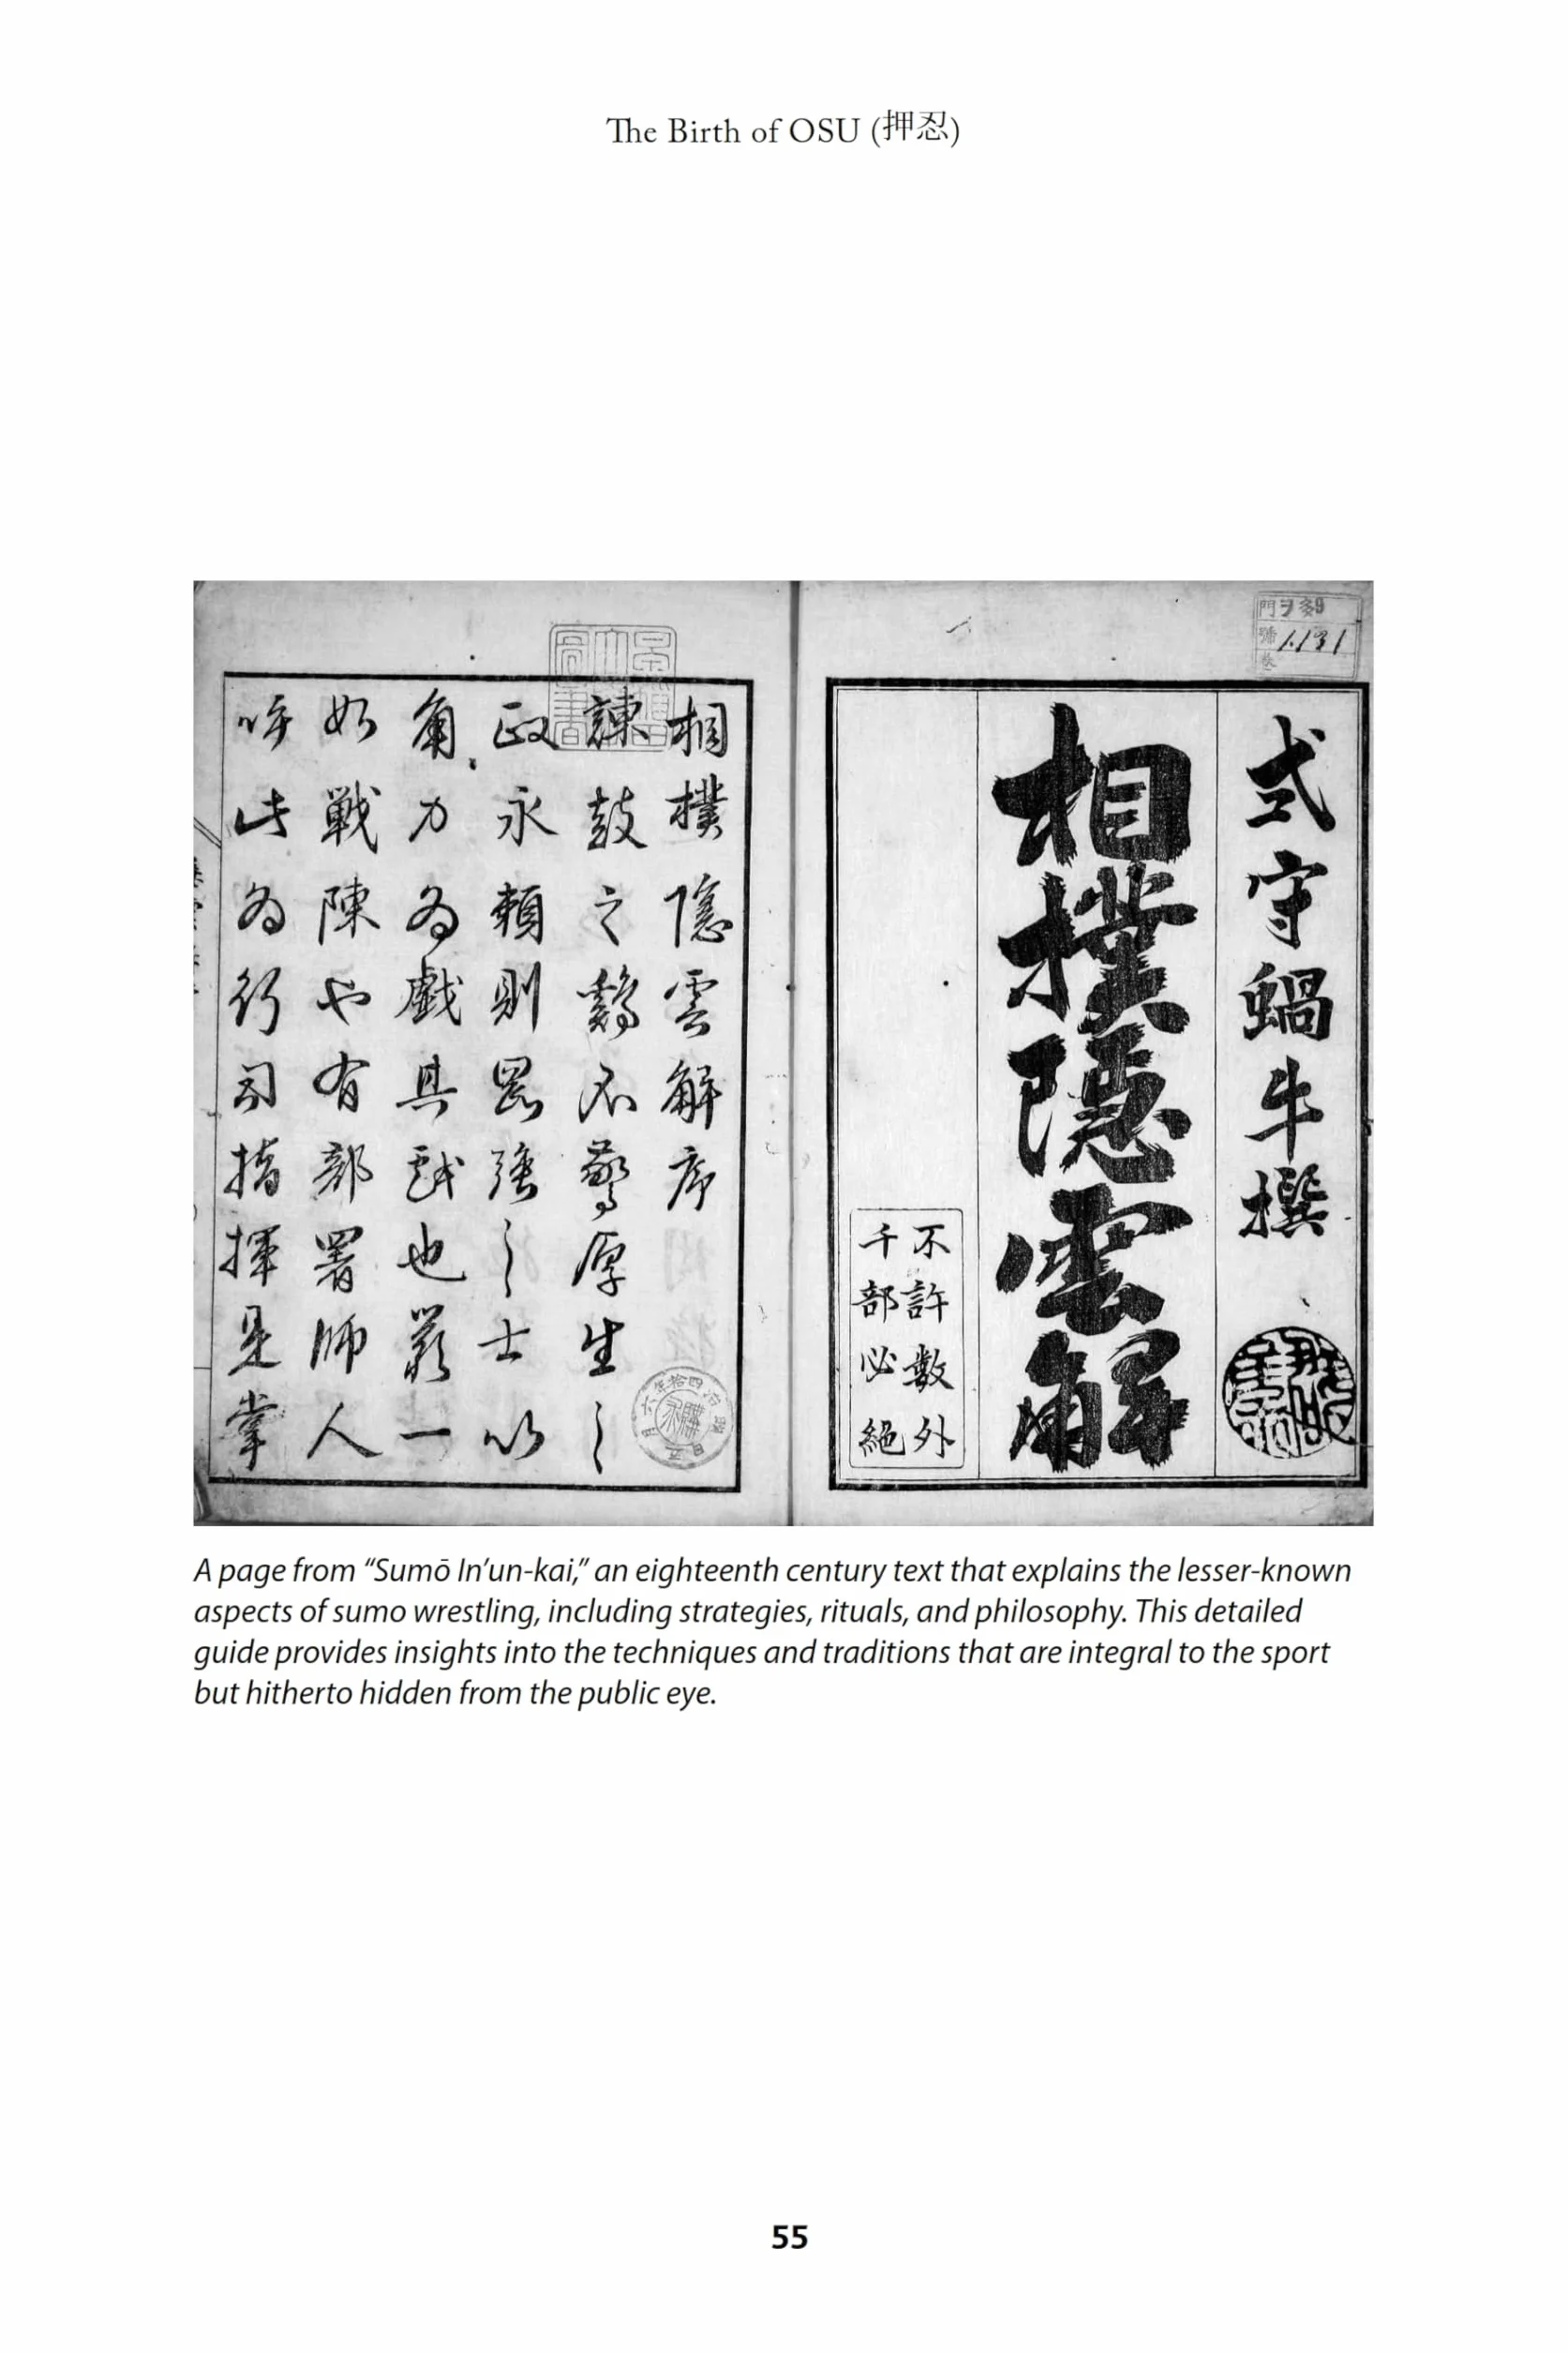 The Birth of OSU (押忍)
式守蝸牛撰
相撲隠雲解
不許數外
千部必絕
相撲隠雲解序
諫鼓之鷄不驚厚生之
政永頼則
角力為戯其戯也嚴一
如戦陳也有部署師人
吁此為行司指揮是掌
A page from “Sumō In’un-kai,” an eighteenth century text that explains the lesser-known
aspects of sumo wrestling, including strategies, rituals, and philosophy. This detailed
guide provides insights into the techniques and traditions that are integral to the sport
but hitherto hidden from the public eye.
55